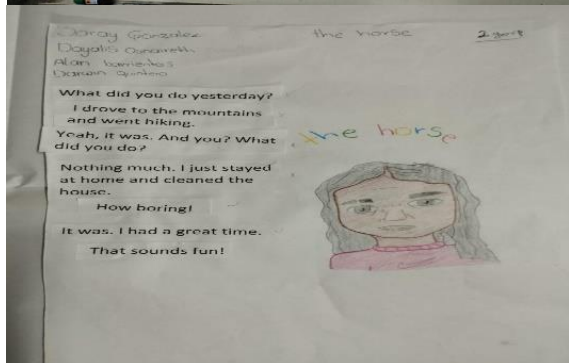 Daray Gonzalez
the horse
Dayalis
Alan
What did you do yesterday?
I drove to the mountains
and went hiking.
Yeah, it was. And you? What
did you do?
the horse
Nothing much. I just stayed
at home and cleaned the
house.
How boring!
It was. I had a great time.
That sounds fun!